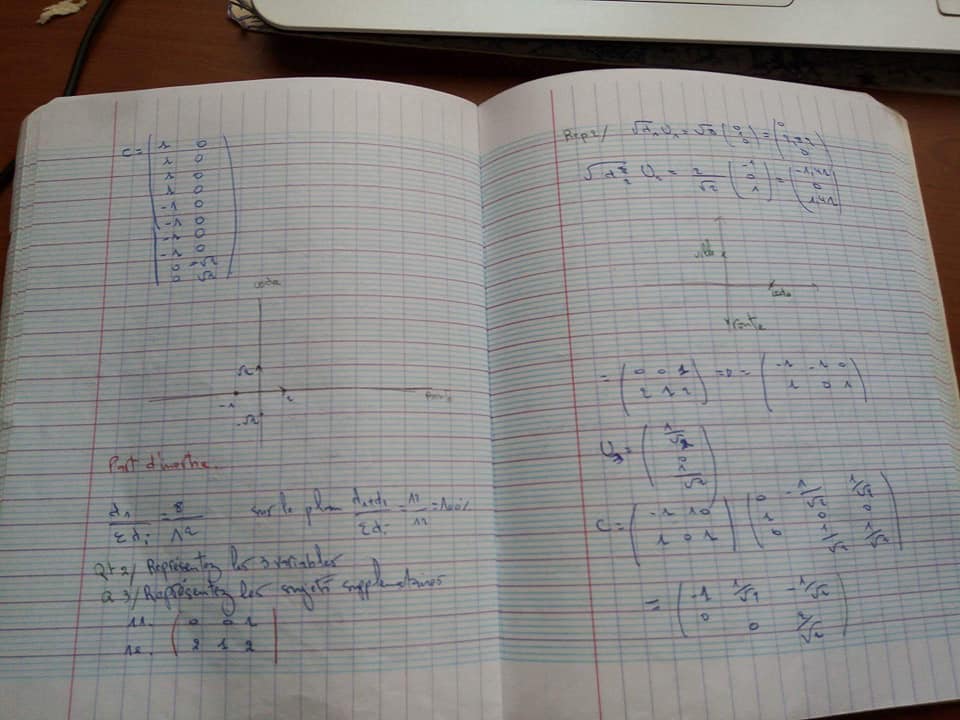 C = ( 1 0
1 0
1 0
1 0
-1 0
-1 0
-1 0
-1 0
0 -√2
0 √2 )
√2
-1 1
-√2
Part d'inertie.
d1/Σdi = 8/12 sur le plan (d1+d2)/Σdi = 12/12 = 100%
Qt 2/ Représentez les 3 variables
Q 3/ Représentez les sujets supplémentaires
11. ( 0 0 1
12. 2 1 2 )
Rep 2/ √d1 U1 = √8 ( 0 1 0 ) = ( 0 2,82 0 )
U2 = 2/√2 ( -1 0 1 ) = ( -1,41 0 1,41 )
= ( 0 0 1
2 1 2 ) => = ( -1 -1 0
1 0 1 )
U3 = ( 1/√2 0 1/√2 )
C = ( -1 1 0
1 0 1 ) ( 0 -1/√2 1/√2
1 0 0
0 1/√2 1/√2 )
= ( -1 1/√2 -1/√2
0 0 2/√2 )